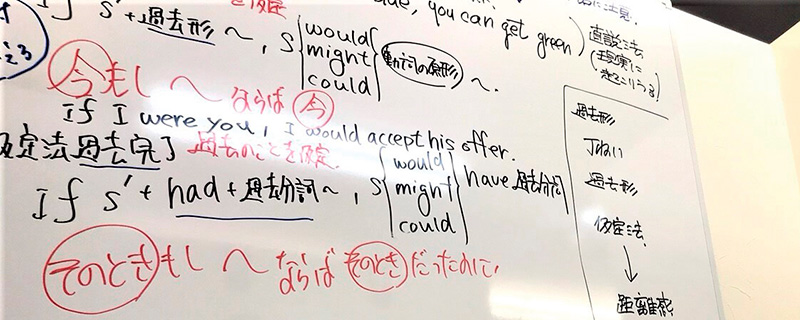 を仮定
, you can get green
直説法
(現実に
起こりうる)
If s'+過去形 ~, S {would might could} 動詞の原形 ~.
今もし~ならば今
If I were you, I would accept his offer.
仮定法過去完了 過去のことを仮定.
If s'+had+過去分詞~, S {would might could} have 過去分詞
そのときもし~ならばそのときだったのに.
過去形
丁ねい
過去形
仮定法
↓
距離感